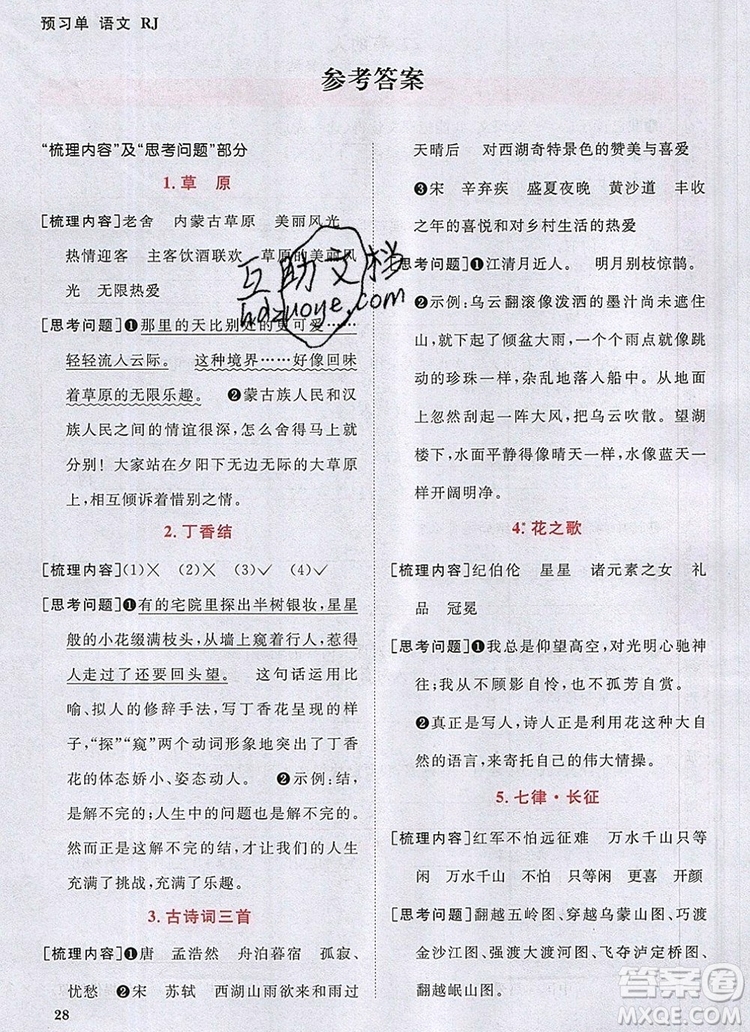 预习单 语文 RJ
参考答案
“梳理内容”及“思考问题”部分
1. 草 原
[梳理内容]老舍 内蒙古草原 美丽风光
热情迎客 主客饮酒联欢 草原的美丽风
光 无限热爱
[思考问题]❶那里的天比别处的更可爱……
轻轻流入云际。 这种境界……好像回味
着草原的无限乐趣。 ❷蒙古族人民和汉
族人民之间的情谊很深,怎么舍得马上就
分别!大家站在夕阳下无边无际的大草原
上,相互倾诉着惜别之情。
2. 丁香结
[梳理内容](1)× (2)× (3)✓ (4)✓
[思考问题]❶有的宅院里探出半树银妆,星星
般的小花缀满枝头,从墙上窥着行人,惹得
人走过了还要回头望。 这句话运用了比
喻、拟人的修辞手法,写丁香花呈现的样
子,“探”“窥”两个动词形象地写出丁香
花的体态娇小、姿态动人。 ❷示例:结,
是解不完的;人生中的问题也是解不完的,
不然,岂不太平淡无味了吗?人生也因此
充满了挑战,充满了乐趣。
3. 古诗词三首
[梳理内容]❶唐 孟浩然 舟泊暮宿 孤寂、
忧愁 ❷宋 苏轼 西湖山雨欲来和雨过
28
天晴后 对西湖奇特景色的赞美与喜爱
❸宋 辛弃疾 盛夏夜晚 黄沙道 丰收
之年的喜悦和对乡村生活的热爱
[思考问题]❶江清月近人。 明月别枝惊鹊。
❷示例:乌云翻滚像泼洒的墨汁尚未遮住
山,大雨就下了起来,水花飞溅像白色跳
动的珍珠一样,杂乱地落入船中。从地面
上卷起一阵大风,把乌云吹散。望湖
楼下,水面平静得像晴天一样,蓝天无云,
开阔明净。
4.* 花之歌
[梳理内容]纪伯伦 星星 诸元素之女 礼
品 冠冕
[思考问题]❶我总是仰望高空,对光明心驰神
往;我从不顾影自怜,也不孤芳自赏。
❷真正是写人,诗人正是利用花这种大自然
的语言,来寄托自己的伟大情操。
5. 七律·长征
[梳理内容]红军不怕远征难 万水千山只等
闲 不怕 万水千山 只等闲 更喜 开颜
[思考问题]翻越五岭图、穿越乌蒙山图、巧渡
金沙江图、强渡大渡河图、飞夺泸定桥图、
翻越岷山图。
互助文档
hdzuoye.com
答案圈
MXQE.COM